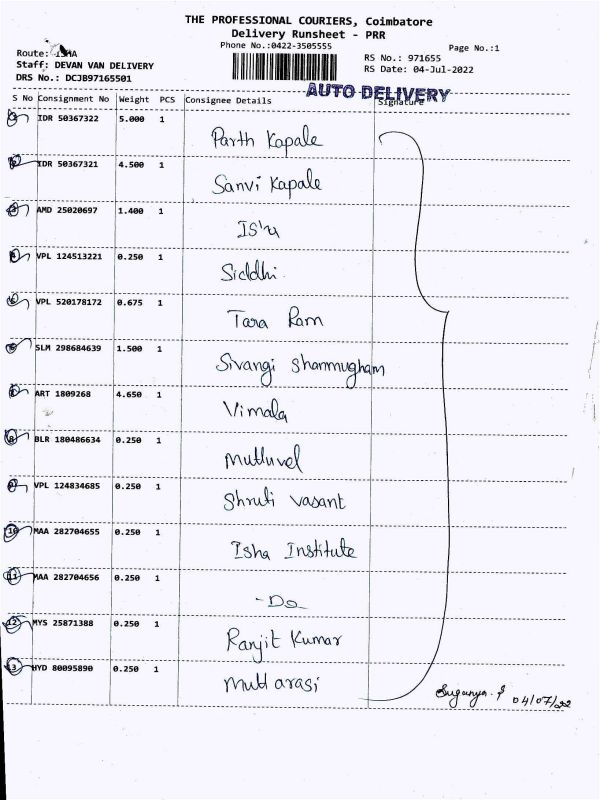 THE PROFESSIONAL COURIERS, Coimbatore
Delivery Runsheet - PRR
Phone No.:0422-3505555
Page No.:1
Route: ISHA
RS No.: 971655
Staff: DEVAN VAN DELIVERY
RS Date: 04-Jul-2022
DRS No.: DCJB97165501
AUTO DELIVERY
S No Consignment No Weight PCS Consignee Details Signature
1 IDR 50367322 5.000 1
Parth Kapale
2 IDR 50367321 4.500 1
Sanvi Kapale
3 AMD 25020697 1.400 1
4 VPL 124513221 0.250 1
Siddhi
5 VPL 520178172 0.675 1
Tara Ram
6 SLM 298684639 1.500 1
Sivangi Shanmugham
7 ART 1809268 4.650 1
Vimala
8 BLR 180486634 0.250 1
Muthuvel
9 VPL 124834685 0.250 1
Shruti Vasant
10 MAA 282704655 0.250 1
Isha Institute
11 MAA 282704656 0.250 1
-Do
12 MYS 25871388 0.250 1
Ranjit Kumar
13 HYD 80095890 0.250 1
Mutt arasi
Suganya. 04/07/22